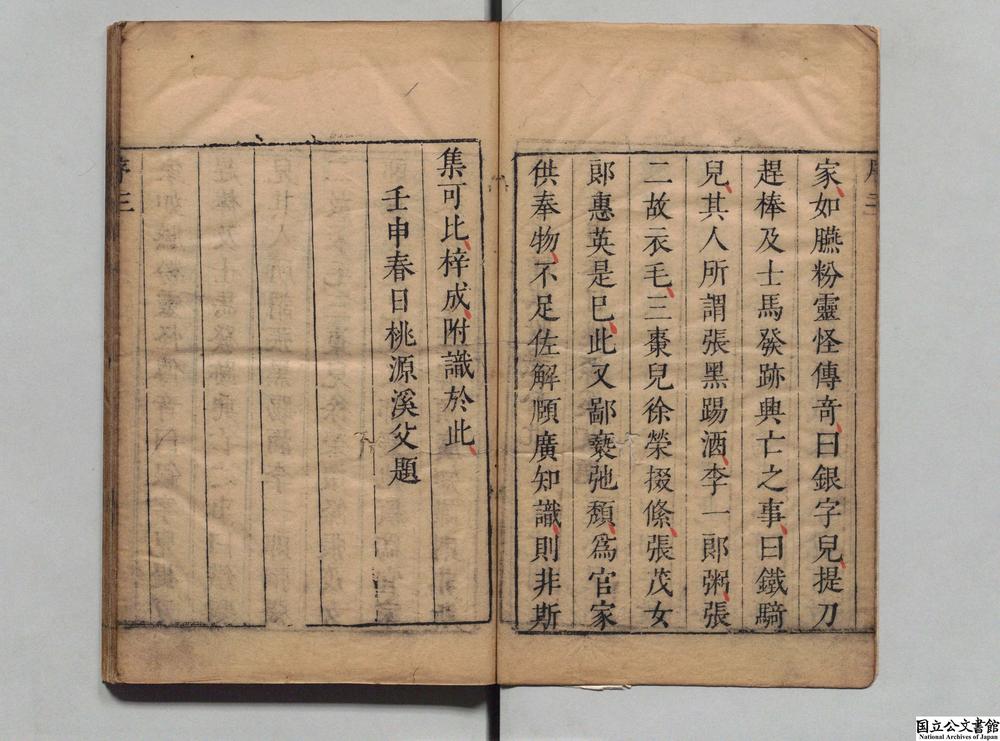 家、如臙粉靈怪傳竒、曰銀字兒、提刀
趕棒及士馬發跡興亡之事、曰鐵騎
兒、其人所謂張黑踢酒、李一郎粥、張
二故衣毛、三棗兒徐榮掇絛、張茂女
郎惠英是已、此又鄙䙝弛頽、爲官家
供奉物、不足佐解頤廣知識、則非斯
集可比、梓成、附識於此、
壬申春日桃源溪父題
序三
国立公文書館
National Archives of Japan